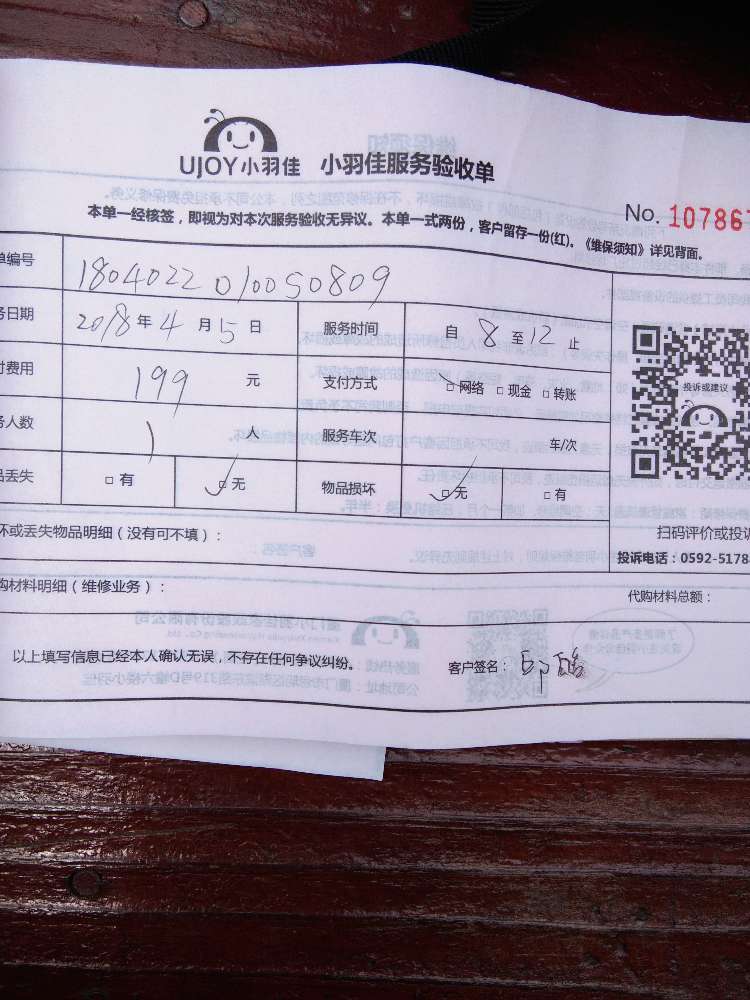 UJOY小羽佳 小羽佳服务验收单
No. 107867
本单一经核签，即视为对本次服务验收无异议。本单一式两份，客户留存一份(红)。《维保须知》详见背面。
单编号 1804022010050809
务日期 2018年4月5日 服务时间 自 8 至 12 止
付费用 199 元 支付方式 □网络 □现金 □转账
投诉或建议
务人数 1 人 服务车次 车/次
品丢失 □有 □无 物品损坏 □无 □有
坏或丢失物品明细（没有可不填）：
扫码评价或投诉
投诉电话：0592-5178
购材料明细（维修业务）： 代购材料总额：
以上填写信息已经本人确认无误，不存在任何争议纠纷。 客户签名：